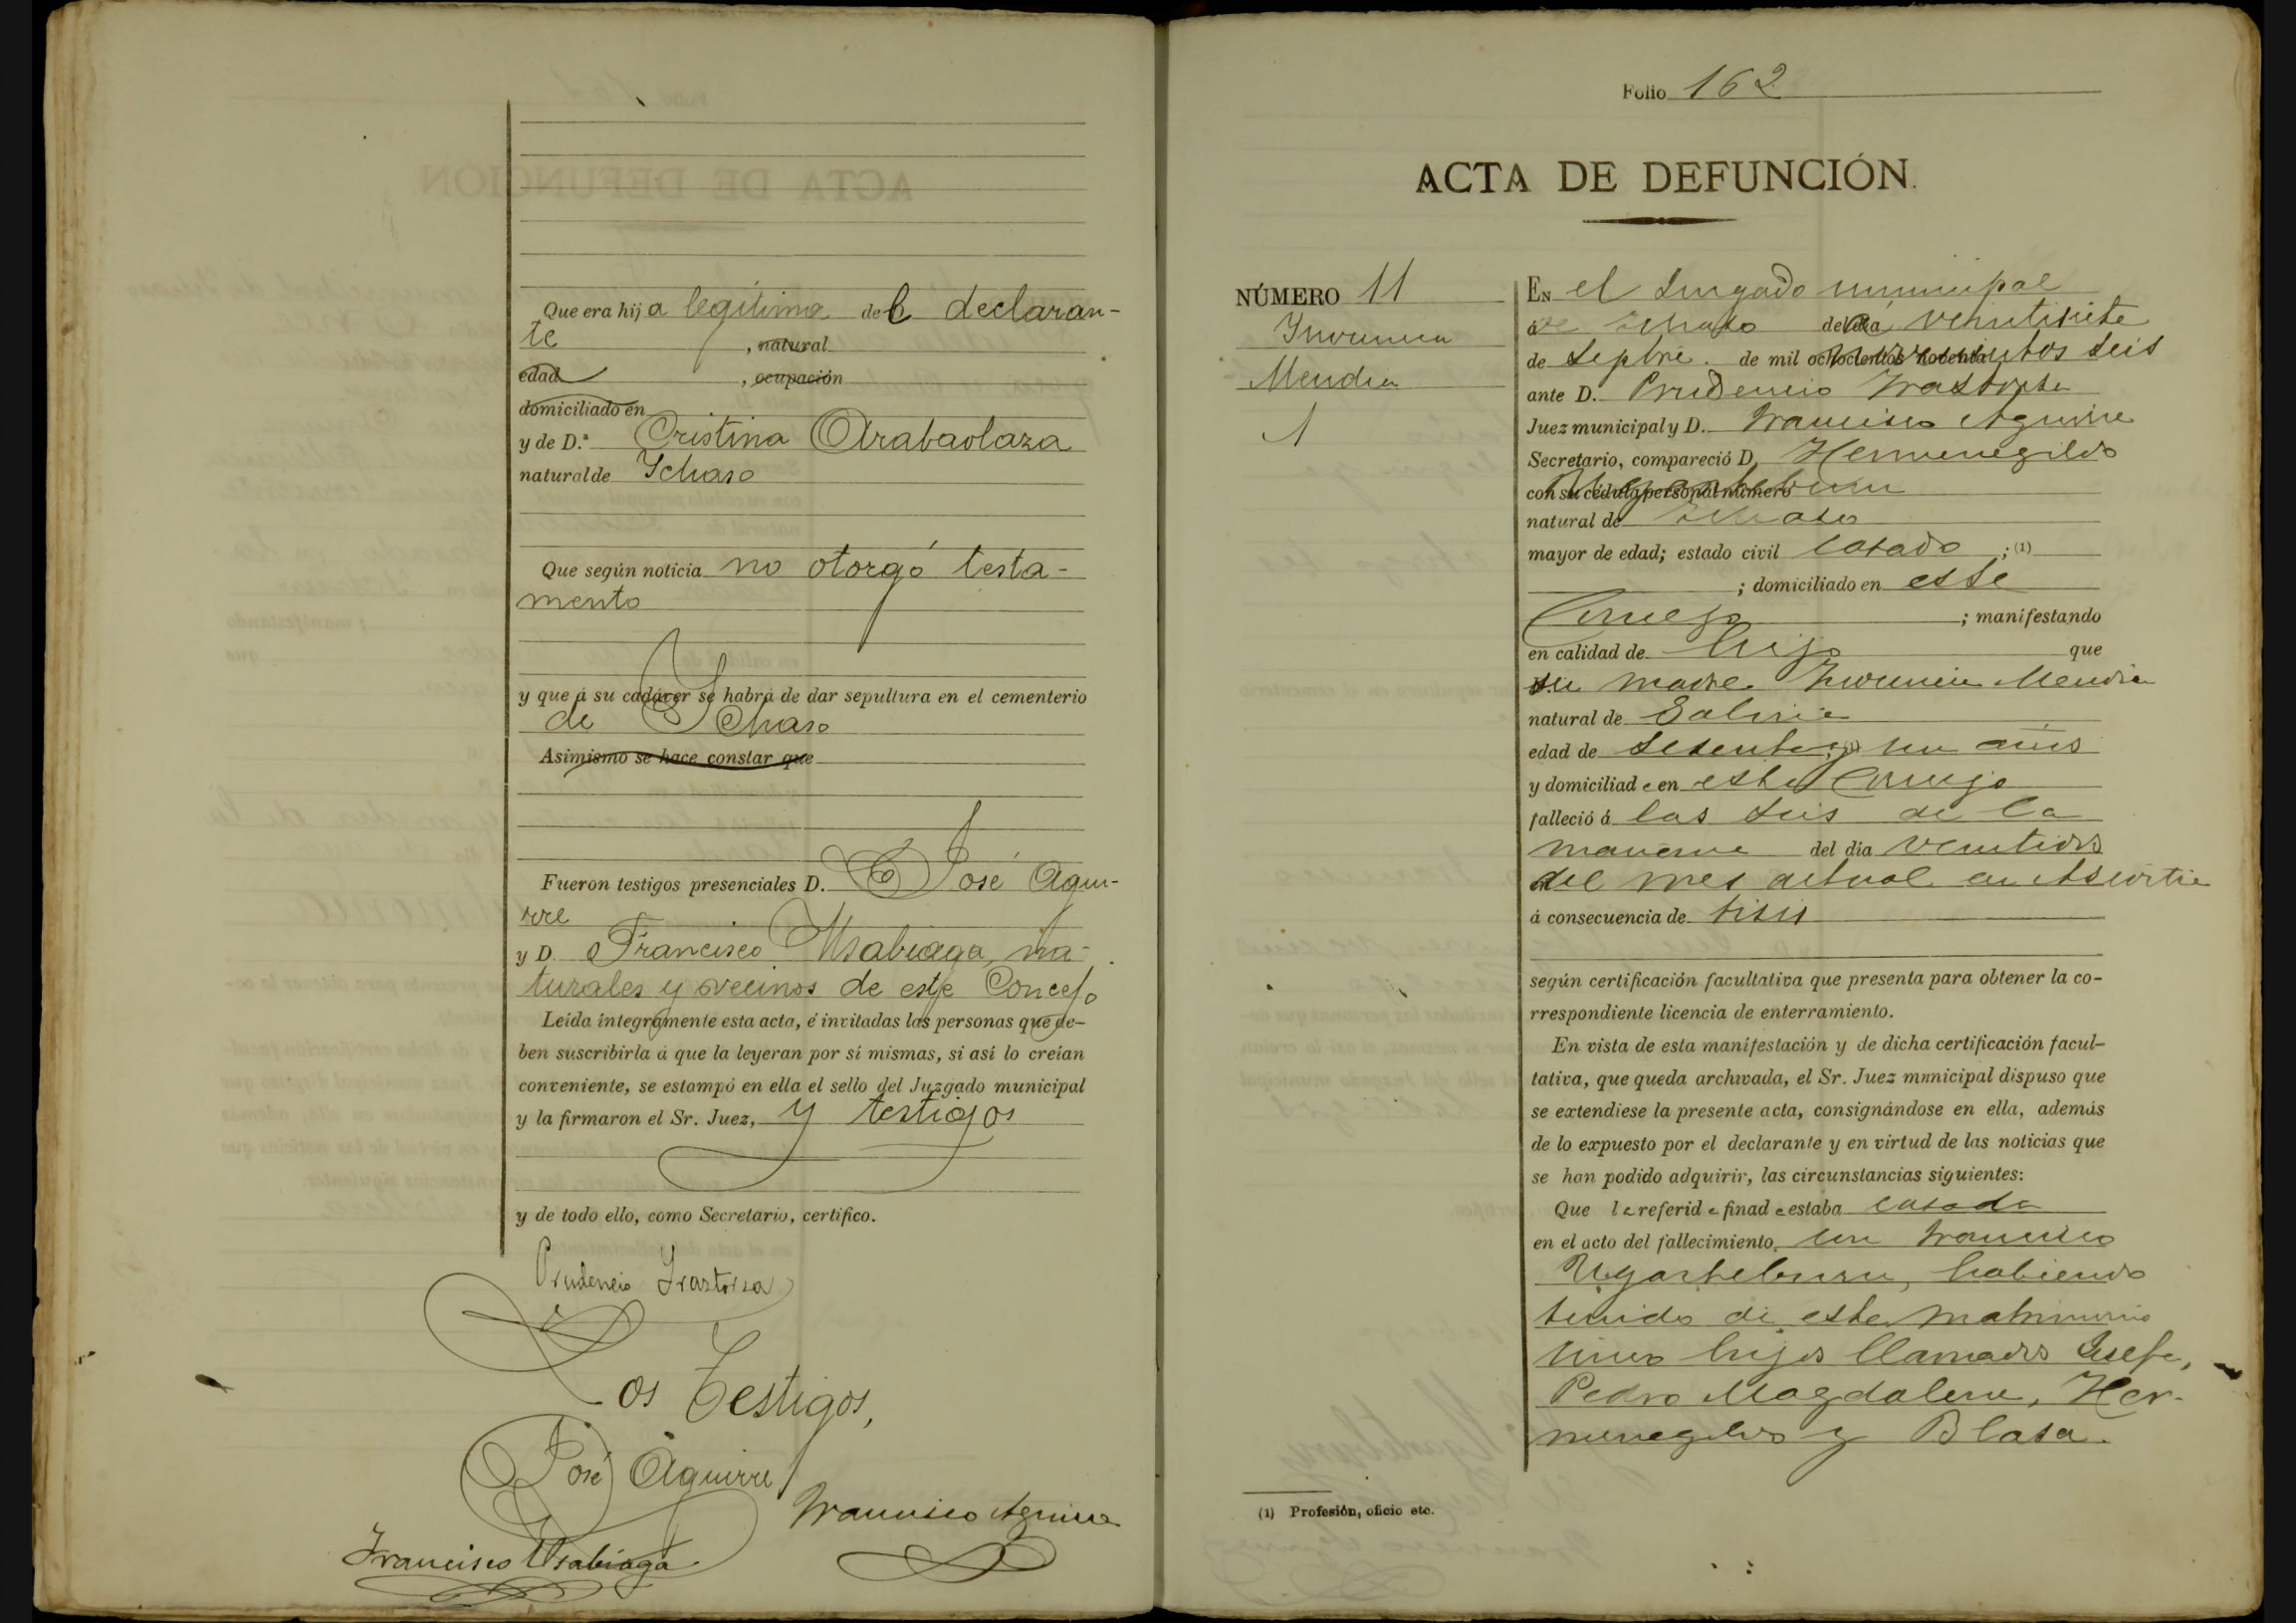 Que era hija legitima del declaran-
te , natural
edad , ocupación
domiciliado en
y de D.ª Cristina Arabaolaza
natural de Ichaso
Que según noticia no otorgó testa-
mento
y que á su cadáver se habrá de dar sepultura en el cementerio
de Ichaso
Asimismo se hace constar que
Fueron testigos presenciales D. José Agui-
rre
y D. Francisco Usabiaga, na-
turales y vecinos de este Concejo
Leída íntegramente esta acta, é invitadas las personas que de-
ben suscribirla á que la leyeran por sí mismas, si así lo creían
conveniente, se estampó en ella el sello del Juzgado municipal
y la firmaron el Sr. Juez, y testigos
y de todo ello, como Secretario, certifico.
Prudencio Irastorza
Los Testigos,
José Aguirre
Francisco Aguirre
Francisco Usabiaga
Folio 162
ACTA DE DEFUNCIÓN.
NÚMERO 11
Mendia
1
En el Jurgado municipal
de Ichaso del dia veintisiete
de Sepbre. de mil novecientos seis
ante D. Prudencio Irastorza
Juez municipal y D. Francisco Aguirre
Secretario, compareció D. Hermenegildo
con su cédula personal número
natural de Ichaso
mayor de edad; estado civil casado ; (1)
; domiciliado en este
Concejo ; manifestando
en calidad de hijo que
su madre Mendia
natural de
edad de sesenta y un años
y domiciliada en este Concejo
falleció á las seis de la
manana del dia veintidos
del mes actual en
á consecuencia de tisis
según certificación facultativa que presenta para obtener la co-
rrespondiente licencia de enterramiento.
En vista de esta manifestación y de dicha certificación facul-
tativa, que queda archivada, el Sr. Juez municipal dispuso que
se extendiese la presente acta, consignándose en ella, además
de lo expuesto por el declarante y en virtud de las noticias que
se han podido adquirir, las circunstancias siguientes:
Que la referida finada estaba casada
en el acto del fallecimiento, con Francisco
Ugarteburu, habiendo
tenido de este matrimonio
cinco hijos llamados Josefa,
Pedro Magdalena, Her-
menegildo y Blasa.
(1) Profesión, oficio etc.